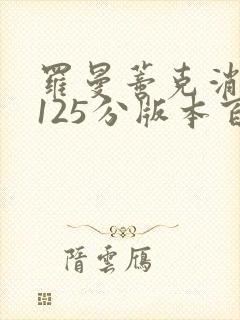 羅曼蒂克消
125分版本百
隋雲雁